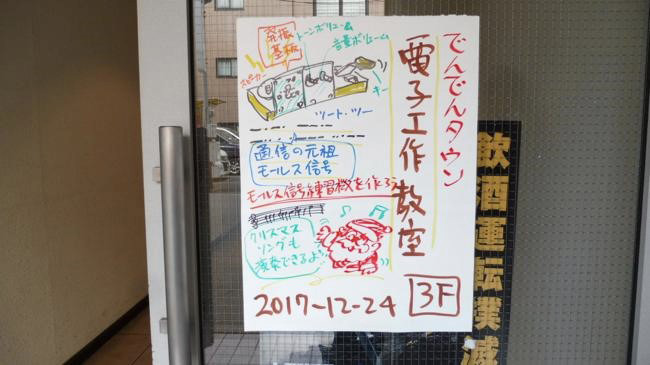 でんでんタウン
電子工作教室
発振
基板
トーンボリューム
音量ボリューム
スピーカー
キー
ツート・ツー
通信の元祖
モールス信号
モールス信号練習機を作ろう
クリスマス
ソングも
演奏できるよ
2017-12-24
3F
飲酒運転業滅